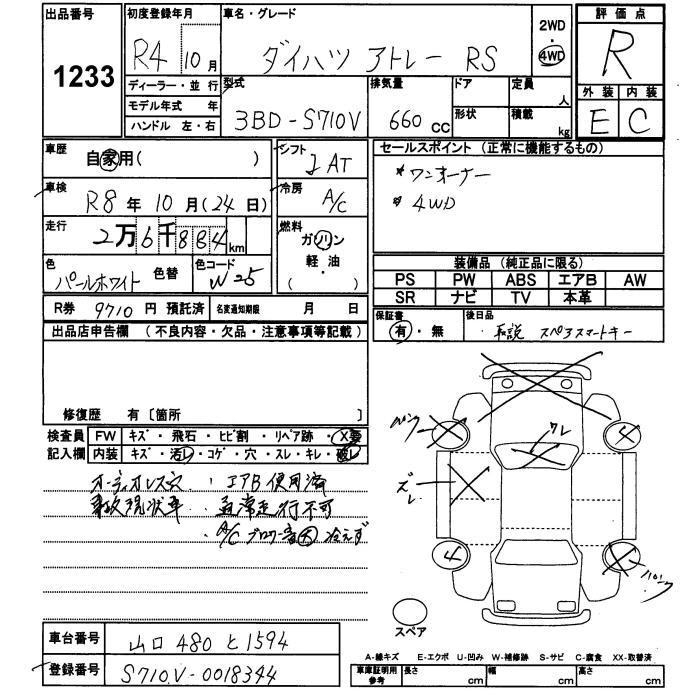 出品番号
1233
初度登録年月
R4 10月
車名・グレード
ダイハツ アトレー RS
2WD
・
4WD
評価点
R
外装 内装
E C
ディーラー・並行
モデル年式 年
ハンドル 左・右
型式
3BD-S710V
排気量
660 CC
ドア
形状
定員
人
積載
kg
車歴
自家用( )
シフト
I AT
車検
R8年10月(24日)
冷房
A/C
走行
2万6千884km
燃料
ガソリン
軽・油
( )
色
パールホワイト 色替
色コード
W25
R券 9710円 預託済 名変通知期限 月 日
セールスポイント (正常に機能するもの)
* ワンオーナー
* 4WD
装備品 (純正品に限る)
PS PW ABS エアB AW
SR ナビ TV 本革
保証書
有・無
後日品
取説 スペアスマートキー
出品店申告欄 (不良内容・欠品・注意事項等記載)
修復歴 有〔箇所 〕
検査員 FW キズ・飛石・ヒビ割・リペア跡・X要
記入欄 内装 キズ・汚レ・コゲ・穴・スレ・キレ・破レ
オーディオレス穴 ・エアB使用済
事故現状車 ・通常走行不可
・A/C ブロワー音大 冷えず
パンク
ワレ
4
ズレ
4
パンク
スペア
車台番号 山口 480 と 1594
登録番号 S710V-0018344
A-線キズ E-エクボ U-凹み W-補修跡 S-サビ C-腐食 XX-取替済
車庫証明用
参考
長さ cm 幅 cm 高さ cm